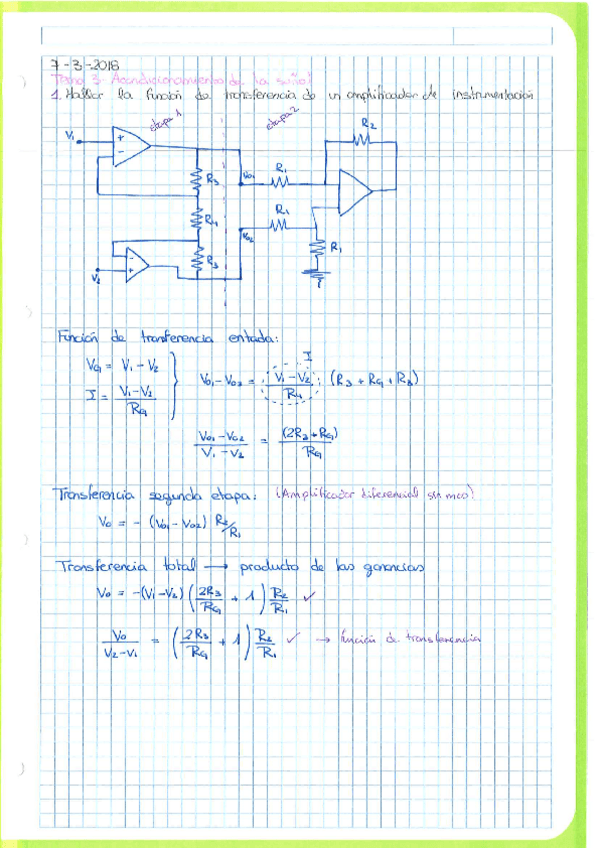 7-3-2018
Tema 3. Acondicionamiento de la señal
1. Hallar la función de transferencia de un amplificador de instrumentación
etapa 1
etapa 2
V₁
+
-
R₃
R₄
R₃
-
+
V₂
Vo₁
Vo₂
R₁
R₁
R₂
R₁
Función de transferencia entada:
VG = V₁ - V₂
I = V₁-V₂ / RG
I
Vo₁-Vo₂ = V₁-V₂ / R₄ (R₃ + RG + R₃)
Vo₁-Vo₂ / V₁-V₂ = (2R₃+RG) / RG
Transferencia segunda etapa: (Amplificador diferencial sin mco)
Vo = - (Vo₁-Vo₂) R₂/R₁
Transferencia total → producto de las ganancias
Vo = -(V₁-V₂) (2R₃/RG + 1) R₂/R₁ ✓
Vo / V₂-V₁ = (2R₃/RG + 1) R₂/R₁ ✓ → función de transferencia